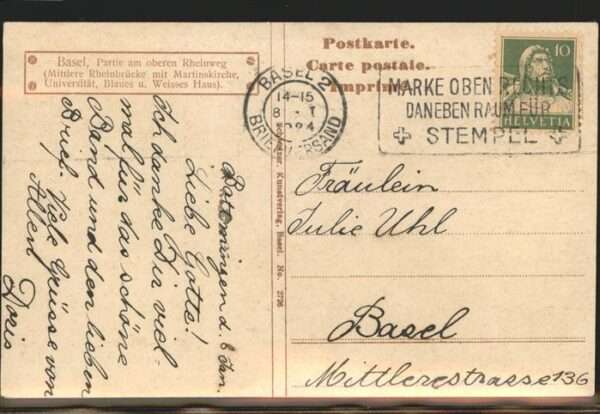 Basel, Partie am oberen Rheinweg
(Mittlere Rheinbrücke mit Martinskirche,
Universität, Blaues u. Weisses Haus).
Postkarte.
Carte postale.
Imprimé
BASEL 2
14-15
8. I
1924
BRIEFVERSAND
MARKE OBEN RECHTS
DANEBEN RAUM FÜR
STEMPEL
10
HELVETIA
Kunstverlag, Basel. No. 2726
d. 8 Jan.
Liebe Gotta!
Ich danke Dir viel-
mal für das schöne
Band und den lieben
Brief. Viele Grüsse von
Allen Doris
Fräulein
Julie Uhl
Basel
Mittlerestrasse 136